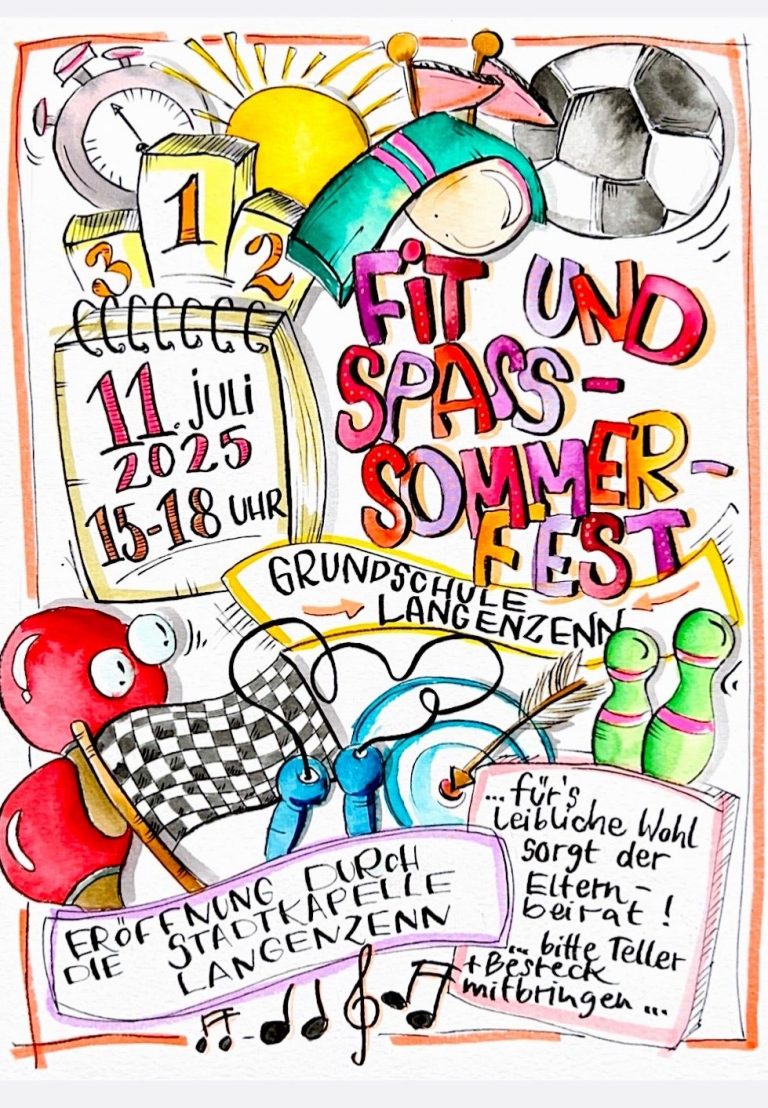 1
3
2
11. Juli
2025
15-18 UHR
FiT UND
SPASS-
SOMMER-
FEST
GRUNDSCHULE
LANGENZENN
... für's
leibliche Wohl
sorgt der
Eltern-
beirat !
... bitte Teller
+ Besteck
mitbringen ...
ERÖFFNUNG DURCH
DIE STADTKAPELLE
LANGENZENN